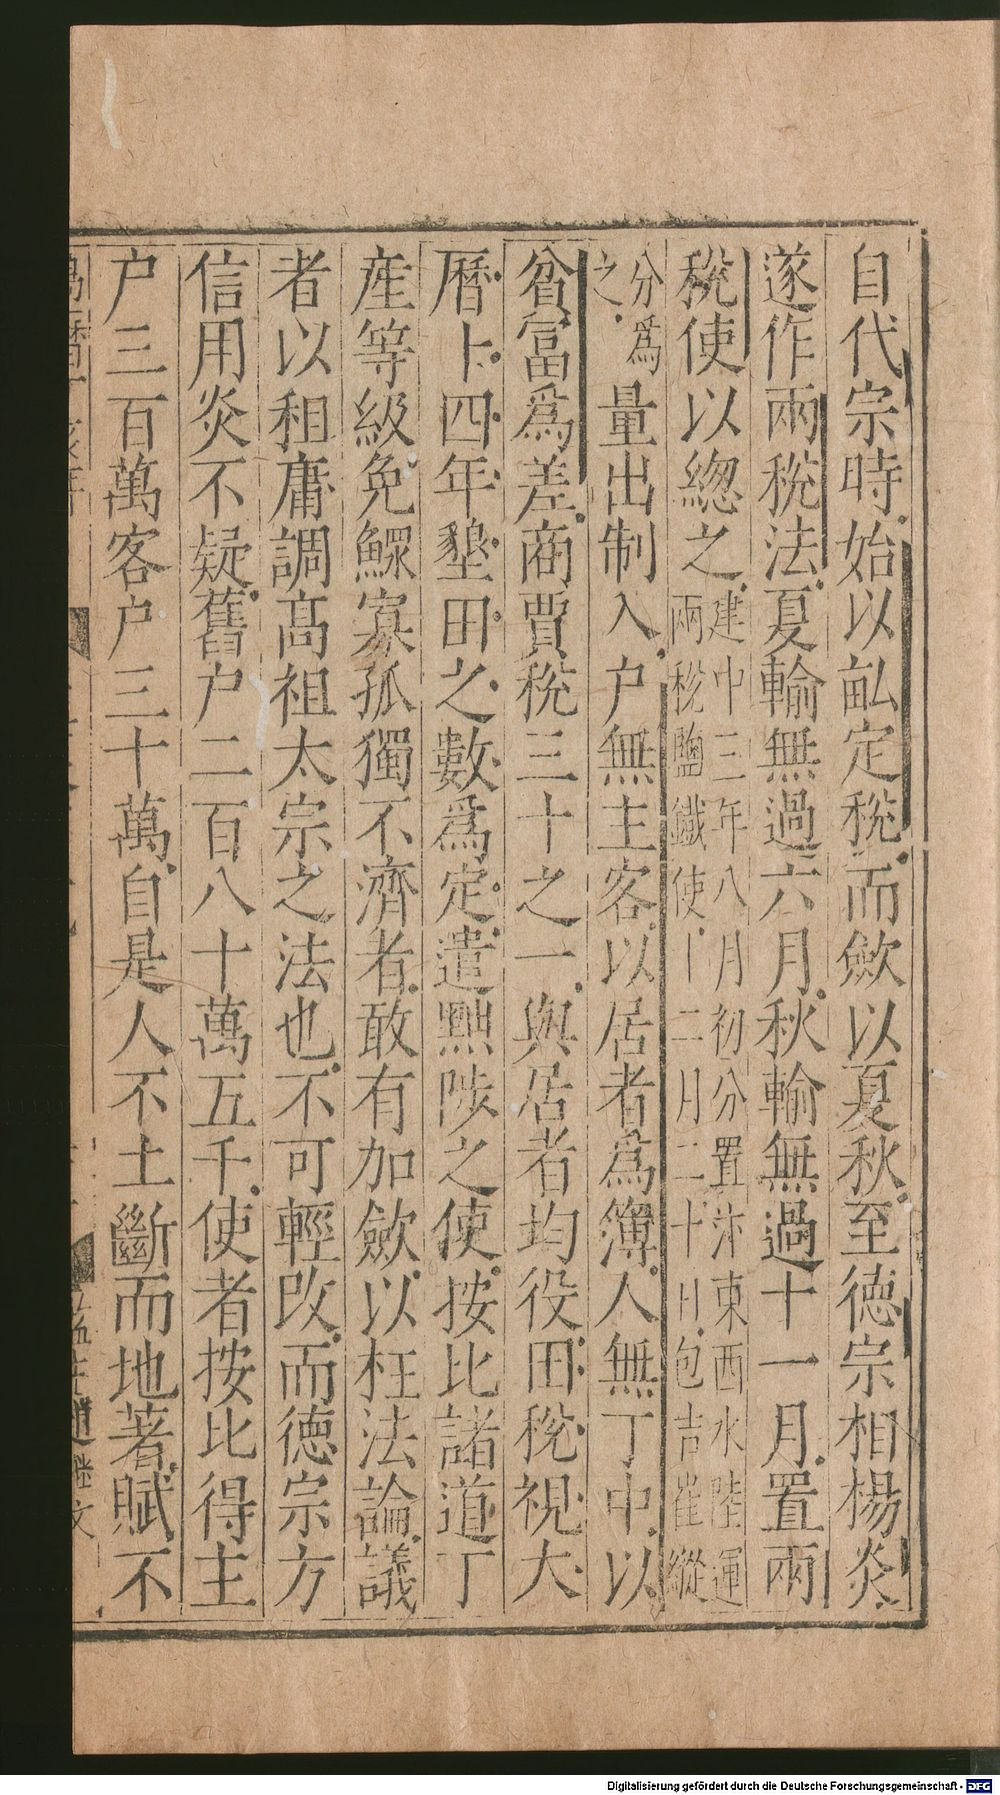 自代宗時始以畝定稅而斂以夏秋至德宗相楊炎
遂作兩稅法夏輸無過六月秋輸無過十一月置兩
稅使以總之建中三年八月初分置汴東西水陸運
兩稅鹽鐵使十二月二十日包吉崔縱
分爲
之量出制入户無主客以居者爲簿人無丁中以
貧富爲差商賈稅三十之一與居者均役田稅視大
曆十四年墾田之數爲定遣黜陟之使按比諸道丁
產等級免鰥寡孤獨不濟者敢有加斂以枉法論議
者以租庸調高祖太宗之法也不可輕改而德宗方
信用炎不疑舊户二百八十萬五千使者按比得主
户三百萬客户三十萬自是人不土斷而地著賦不
Digitalisierung gefördert durch die Deutsche Forschungsgemeinschaft - DFG